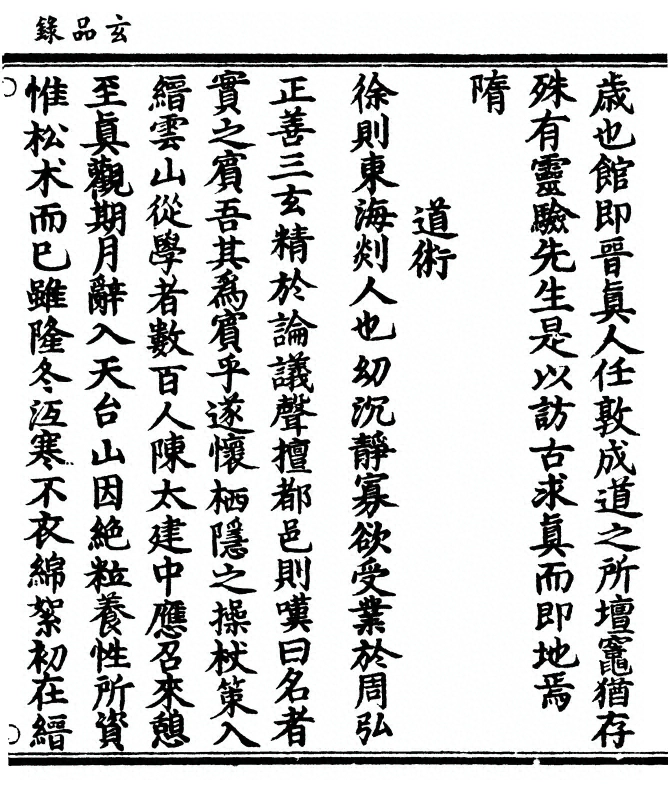 玄品錄
歲也館即晉眞人任敦成道之所壇竈猶存
殊有靈驗先生是以訪古求眞而即地焉
隋
道術
徐則東海剡人也幼沉靜寡欲受業於周弘
正善三玄精於論議聲擅都邑則嘆曰名者
實之賓吾其爲賓乎遂懷栖隱之操杖策入
縉雲山從學者數百人陳太建中應召來憩
至眞觀期月辭入天台山因絶粒養性所資
惟松朮而已雖隆冬沍寒不衣綿絮初在縉